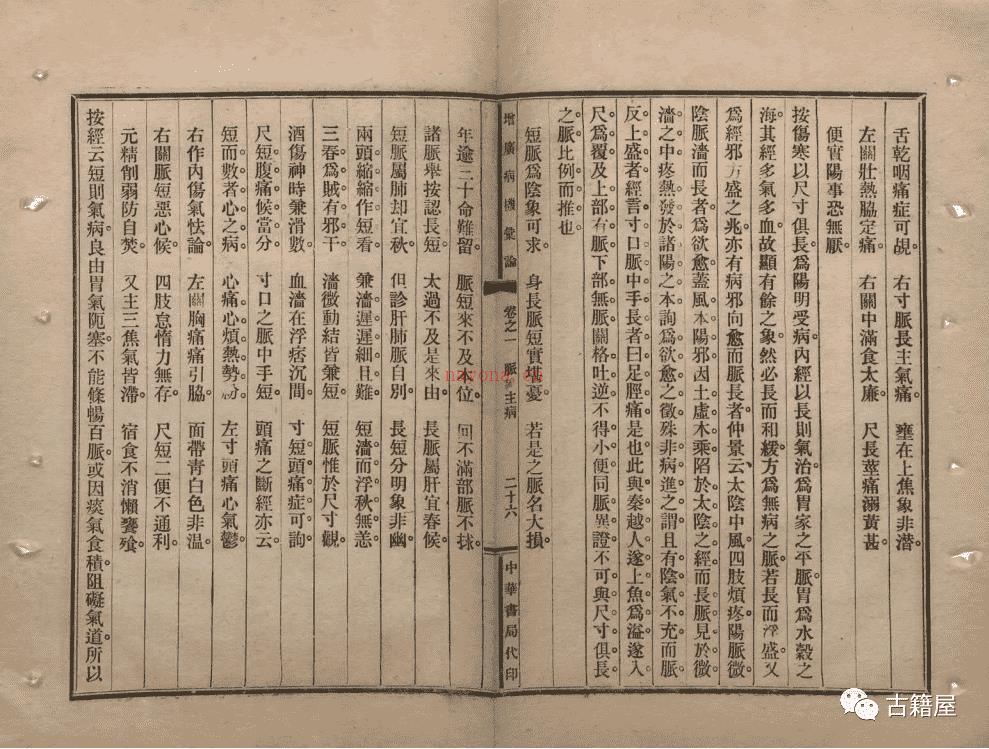 舌乾咽痛症可覘。 右寸脈長主氣痛 壅在上焦象非潛
左關壯熱脇定痛 右關中滿食太廉 尺長莖痛溺黃甚
便實陽事恐無厭
按傷寒以尺寸俱長。爲陽明受病。內經以長則氣治。爲胃家之平脈。胃爲水穀之
海。其經多氣多血。故顯有餘之象。然必長而和緩。方爲無病之脈。若長而浮盛。又
爲經邪方盛之兆。亦有病邪向愈而脈長者。仲景云、太陰中風。四肢煩疼。陽脈微
陰脈濇而長者。爲欲愈。蓋風本陽邪。因土虛木乘。陷於太陰之經。而長脈見於微
濇之中。疼熱發於諸陽之本。詢爲欲愈之徵。殊非病進之謂。且有陰氣不充。而脈
反上盛者。經言寸口脈中手長者。曰足脛痛是也。此與秦越人遂上魚爲溢。遂入
尺爲覆。及上部有脈。下部無脈。關格吐逆。不得小便。同脈異證。不可與尺寸俱長
之脈比例而推也。
短脈爲陰象可求。 身長脈短實堪憂 若是之脈名大損
增廣病機彙論 卷之一 脈 主病 二十六 中華書局代印
年逾二十命難留。 脈短來不及本位。 回不滿部脈不抹。
諸脈舉按認長短 太過不及是來由 長脈屬肝宜春候
短脈屬肺却宜秋。 但診肝肺脈自別。 長短分明象非幽
兩頭縮縮作短看 兼濇遲遲細且難 短濇而浮秋無恙
三春爲賊有邪干 濇微動結皆兼短 短脈惟於尺寸觀
酒傷神時兼滑數 血濇在浮痞沉間 寸短頭痛症可詢
尺短腹痛候當分 寸口之脈中手短 頭痛之斷經亦云
短而數者心之病 心痛心煩熱勢分 左寸頭痛心氣鬱
右作內傷氣怯論 左關胸痛痛引脇 面帶青白色非溫
右關脈短惡心候 四肢怠惰力無存 尺短二便不通利
元精削弱防自焚。 又主三焦氣皆滯。 宿食不消懶饔飧。
按經云短則氣病。良由胃氣阨塞。不能條暢百脈。或因痰氣食積。阻礙氣道。所以
navona.eu
古籍屋